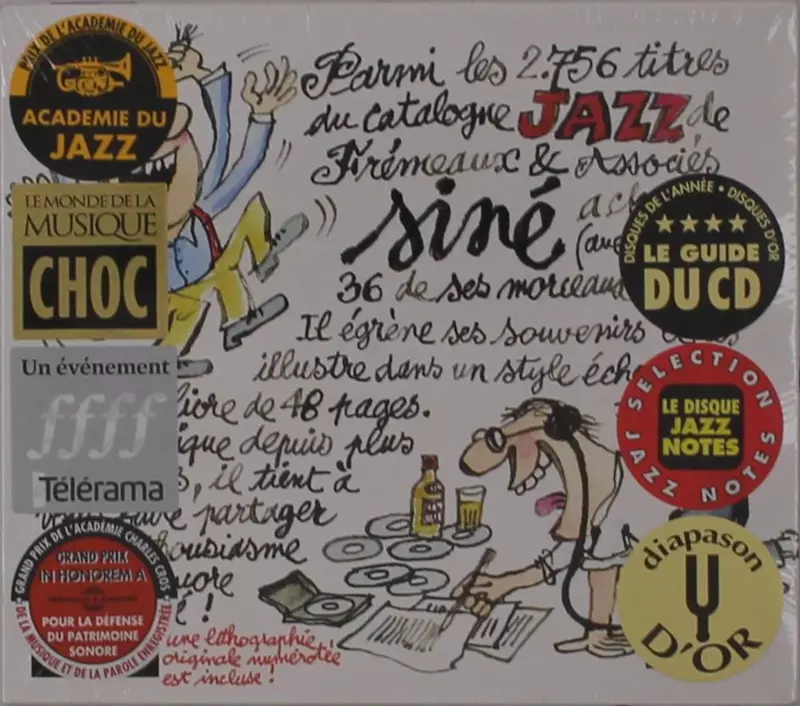 PRIX DE L'ACADEMIE DU JAZZ
ACADEMIE DU
JAZZ
LE MONDE DE LA
MUSIQUE
CHOC
Un événement
ffff
Télérama
GRAND PRIX DE L'ACADÉMIE CHARLES CROS
GRAND PRIX
IN HONOREM A
POUR LA DÉFENSE
DU PATRIMOINE
SONORE
DE LA MUSIQUE ET DE LA PAROLE ENREGISTRÉE
Parmi les 2.756 titres
du catalogue JAZZ de
Frémeaux & Associés
siné
36 de ses morceau
Il égrène ses souvenirs
illustre dans un style éch
de 48 pages.
depuis plus
, il tient à
partager
!
une lithographie
originale numérotée
est incluse !
DISQUES DE L'ANNÉE • DISQUES D'OR
LE GUIDE
DU CD
SELECTION
LE DISQUE
JAZZ
NOTES
JAZZ NOTES
diapason
D'OR